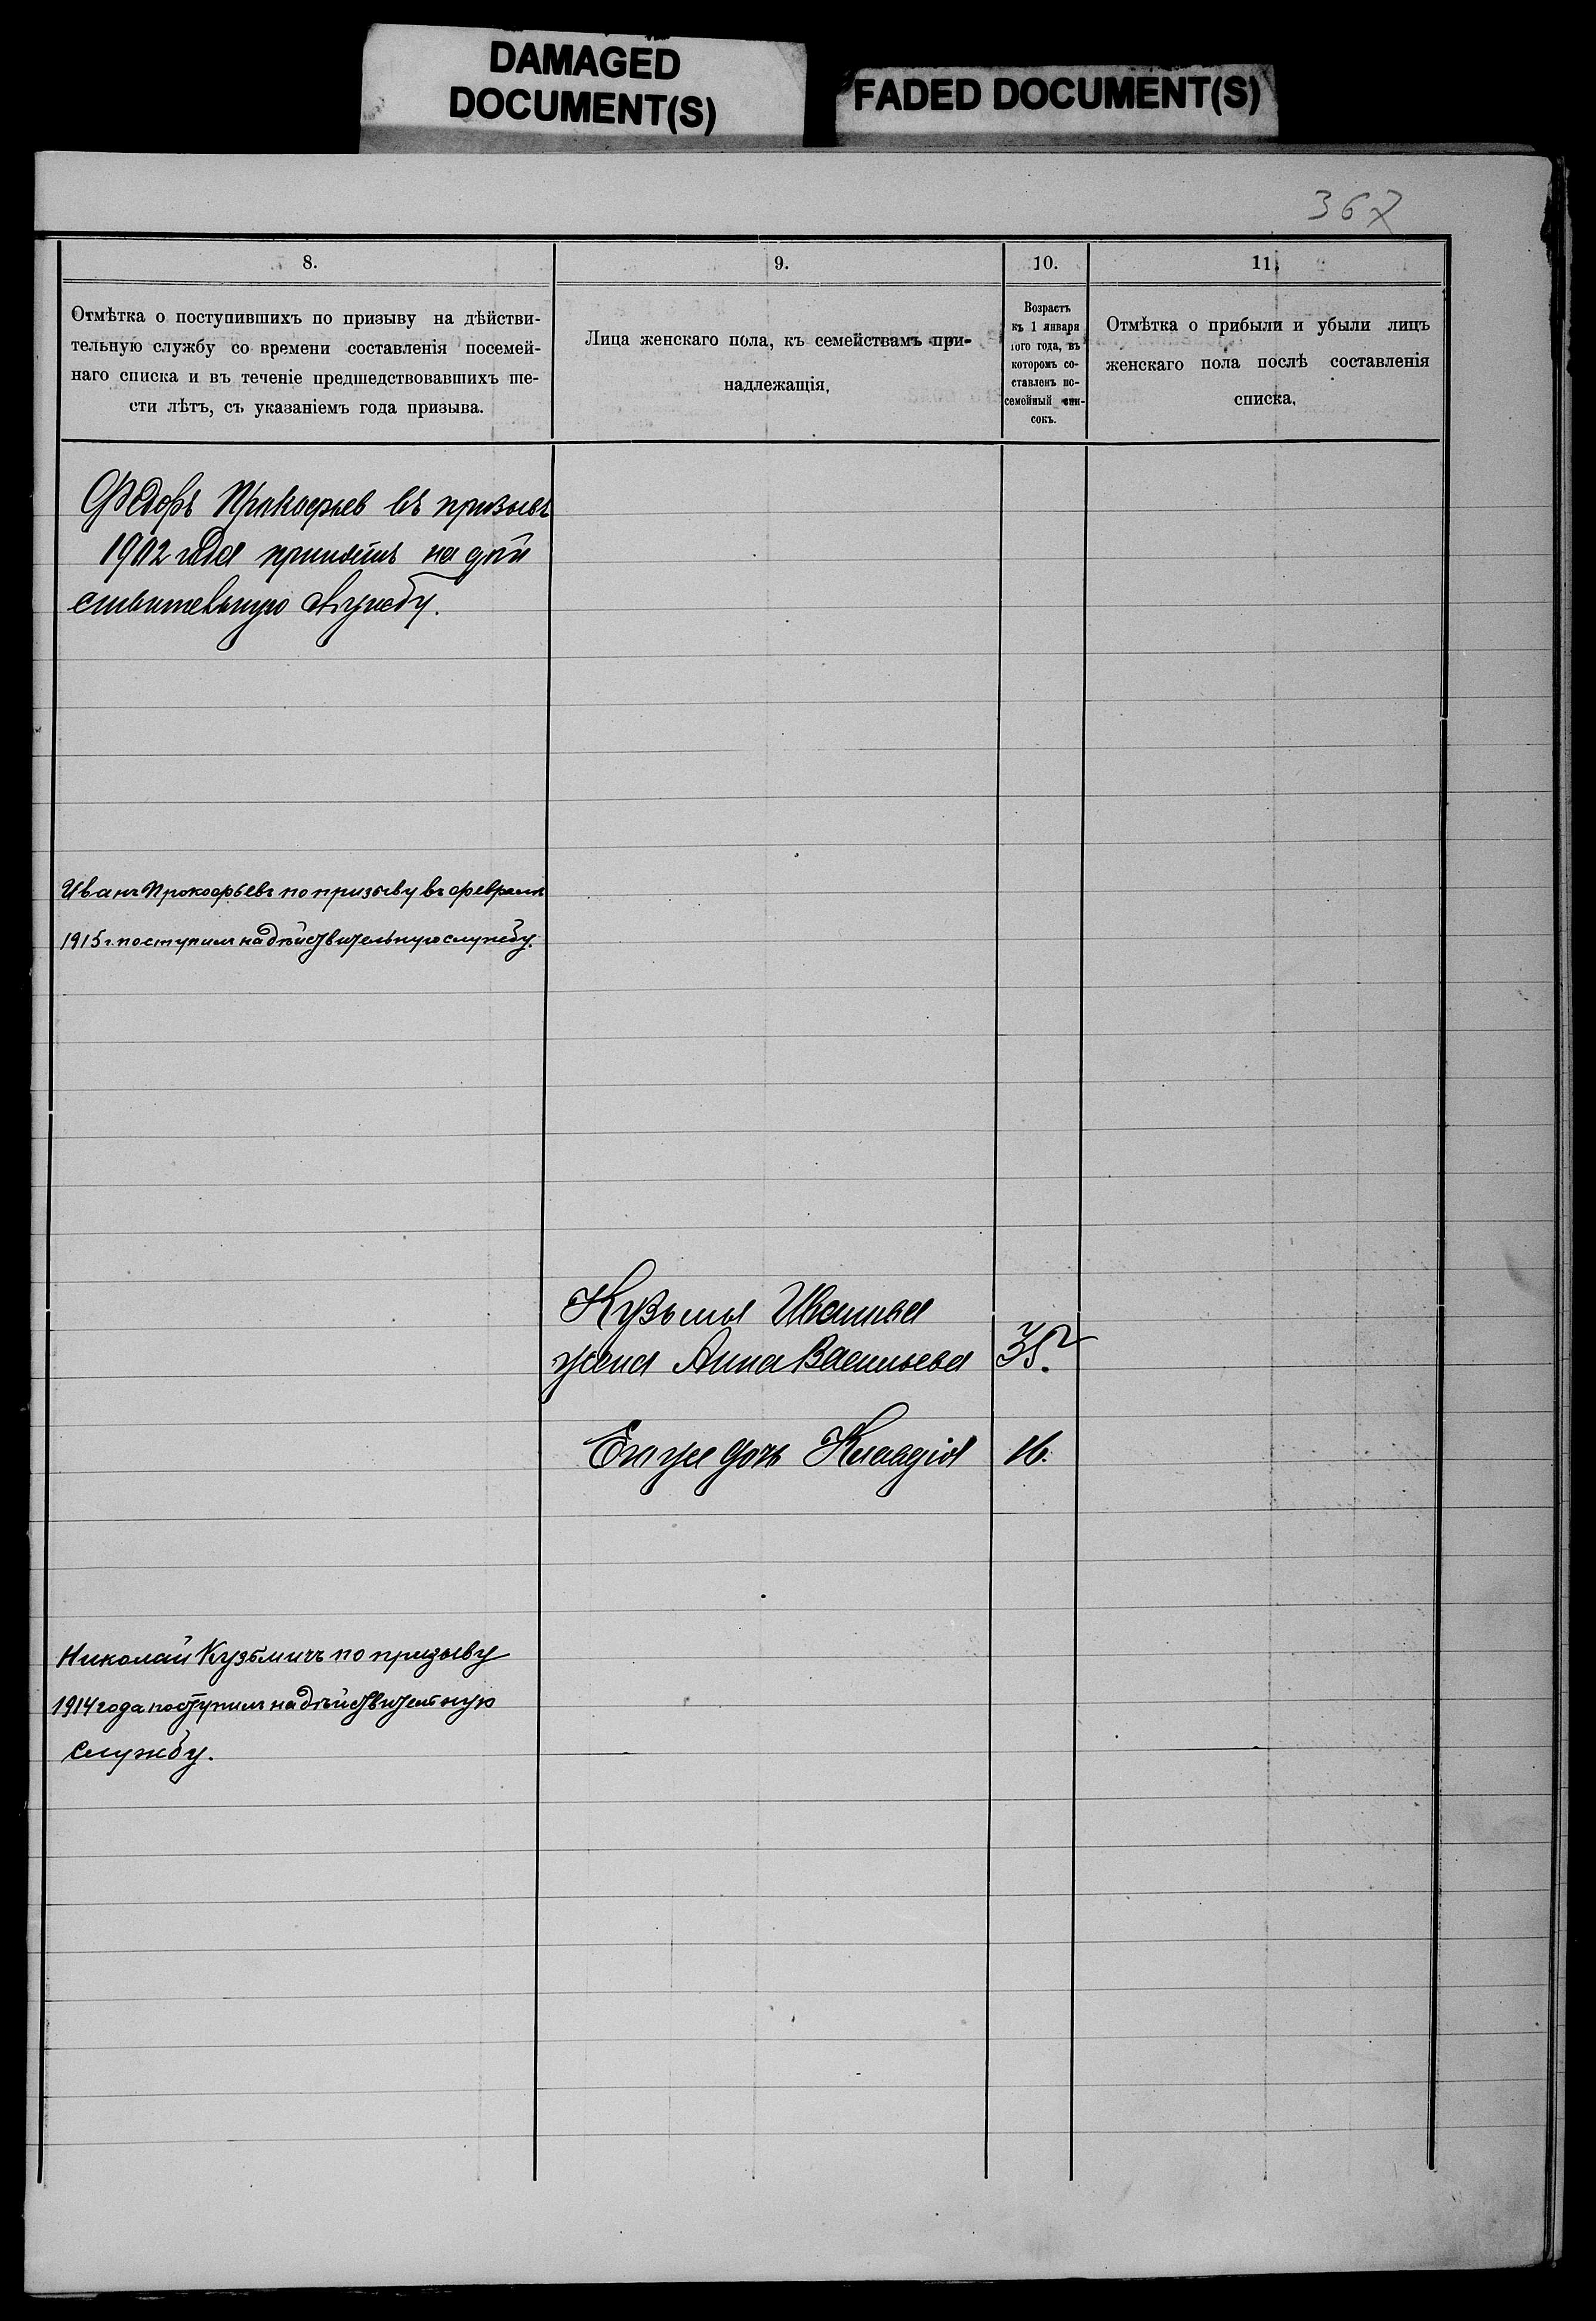 DAMAGED
DOCUMENT(S)
FADED DOCUMENT(S)
367
8.
9.
10.
11.
Отмѣтка о поступившихъ по призыву на дѣйстви-
тельную службу со времени составленія посемей-
наго списка и въ теченіе предшедствовавшихъ ше-
сти лѣтъ, съ указаніемъ года призыва.
Лица женскаго пола, къ семействамъ при-
надлежащія,
Возрастъ
къ 1 января
того года, въ
которомъ со-
ставленъ по-
семейный спи-
сокъ.
Отмѣтка о прибыли и убыли лицъ
женскаго пола послѣ составленія
списка.
Федоръ Прокофьев въ призывъ
1902 года принятъ на дѣй
ствительную службу.
Иванъ Прокофьевъ по призыву въ февралѣ
1915 г. поступилъ на дѣйствительную службу.
Кузьмы Иванова
жена Анна Васильева 35.
Ею же дочь Клавдія 16.
Николай Кузьмичъ по призыву
1914 года поступилъ на дѣйствительную
службу.